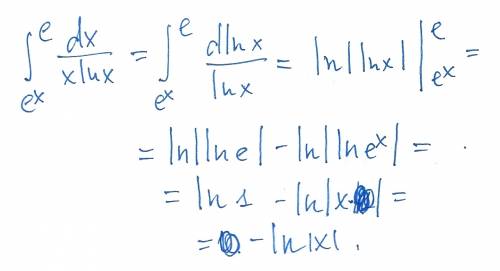 ∫_{e^x}^{e} dx/(x ln x) = ∫_{e^x}^{e} d ln x/(ln x) = ln|ln x| |_{e^x}^{e} =
= ln|ln e| - ln|ln e^x| =
= ln 1 - ln|x·| =
= - ln|x|.